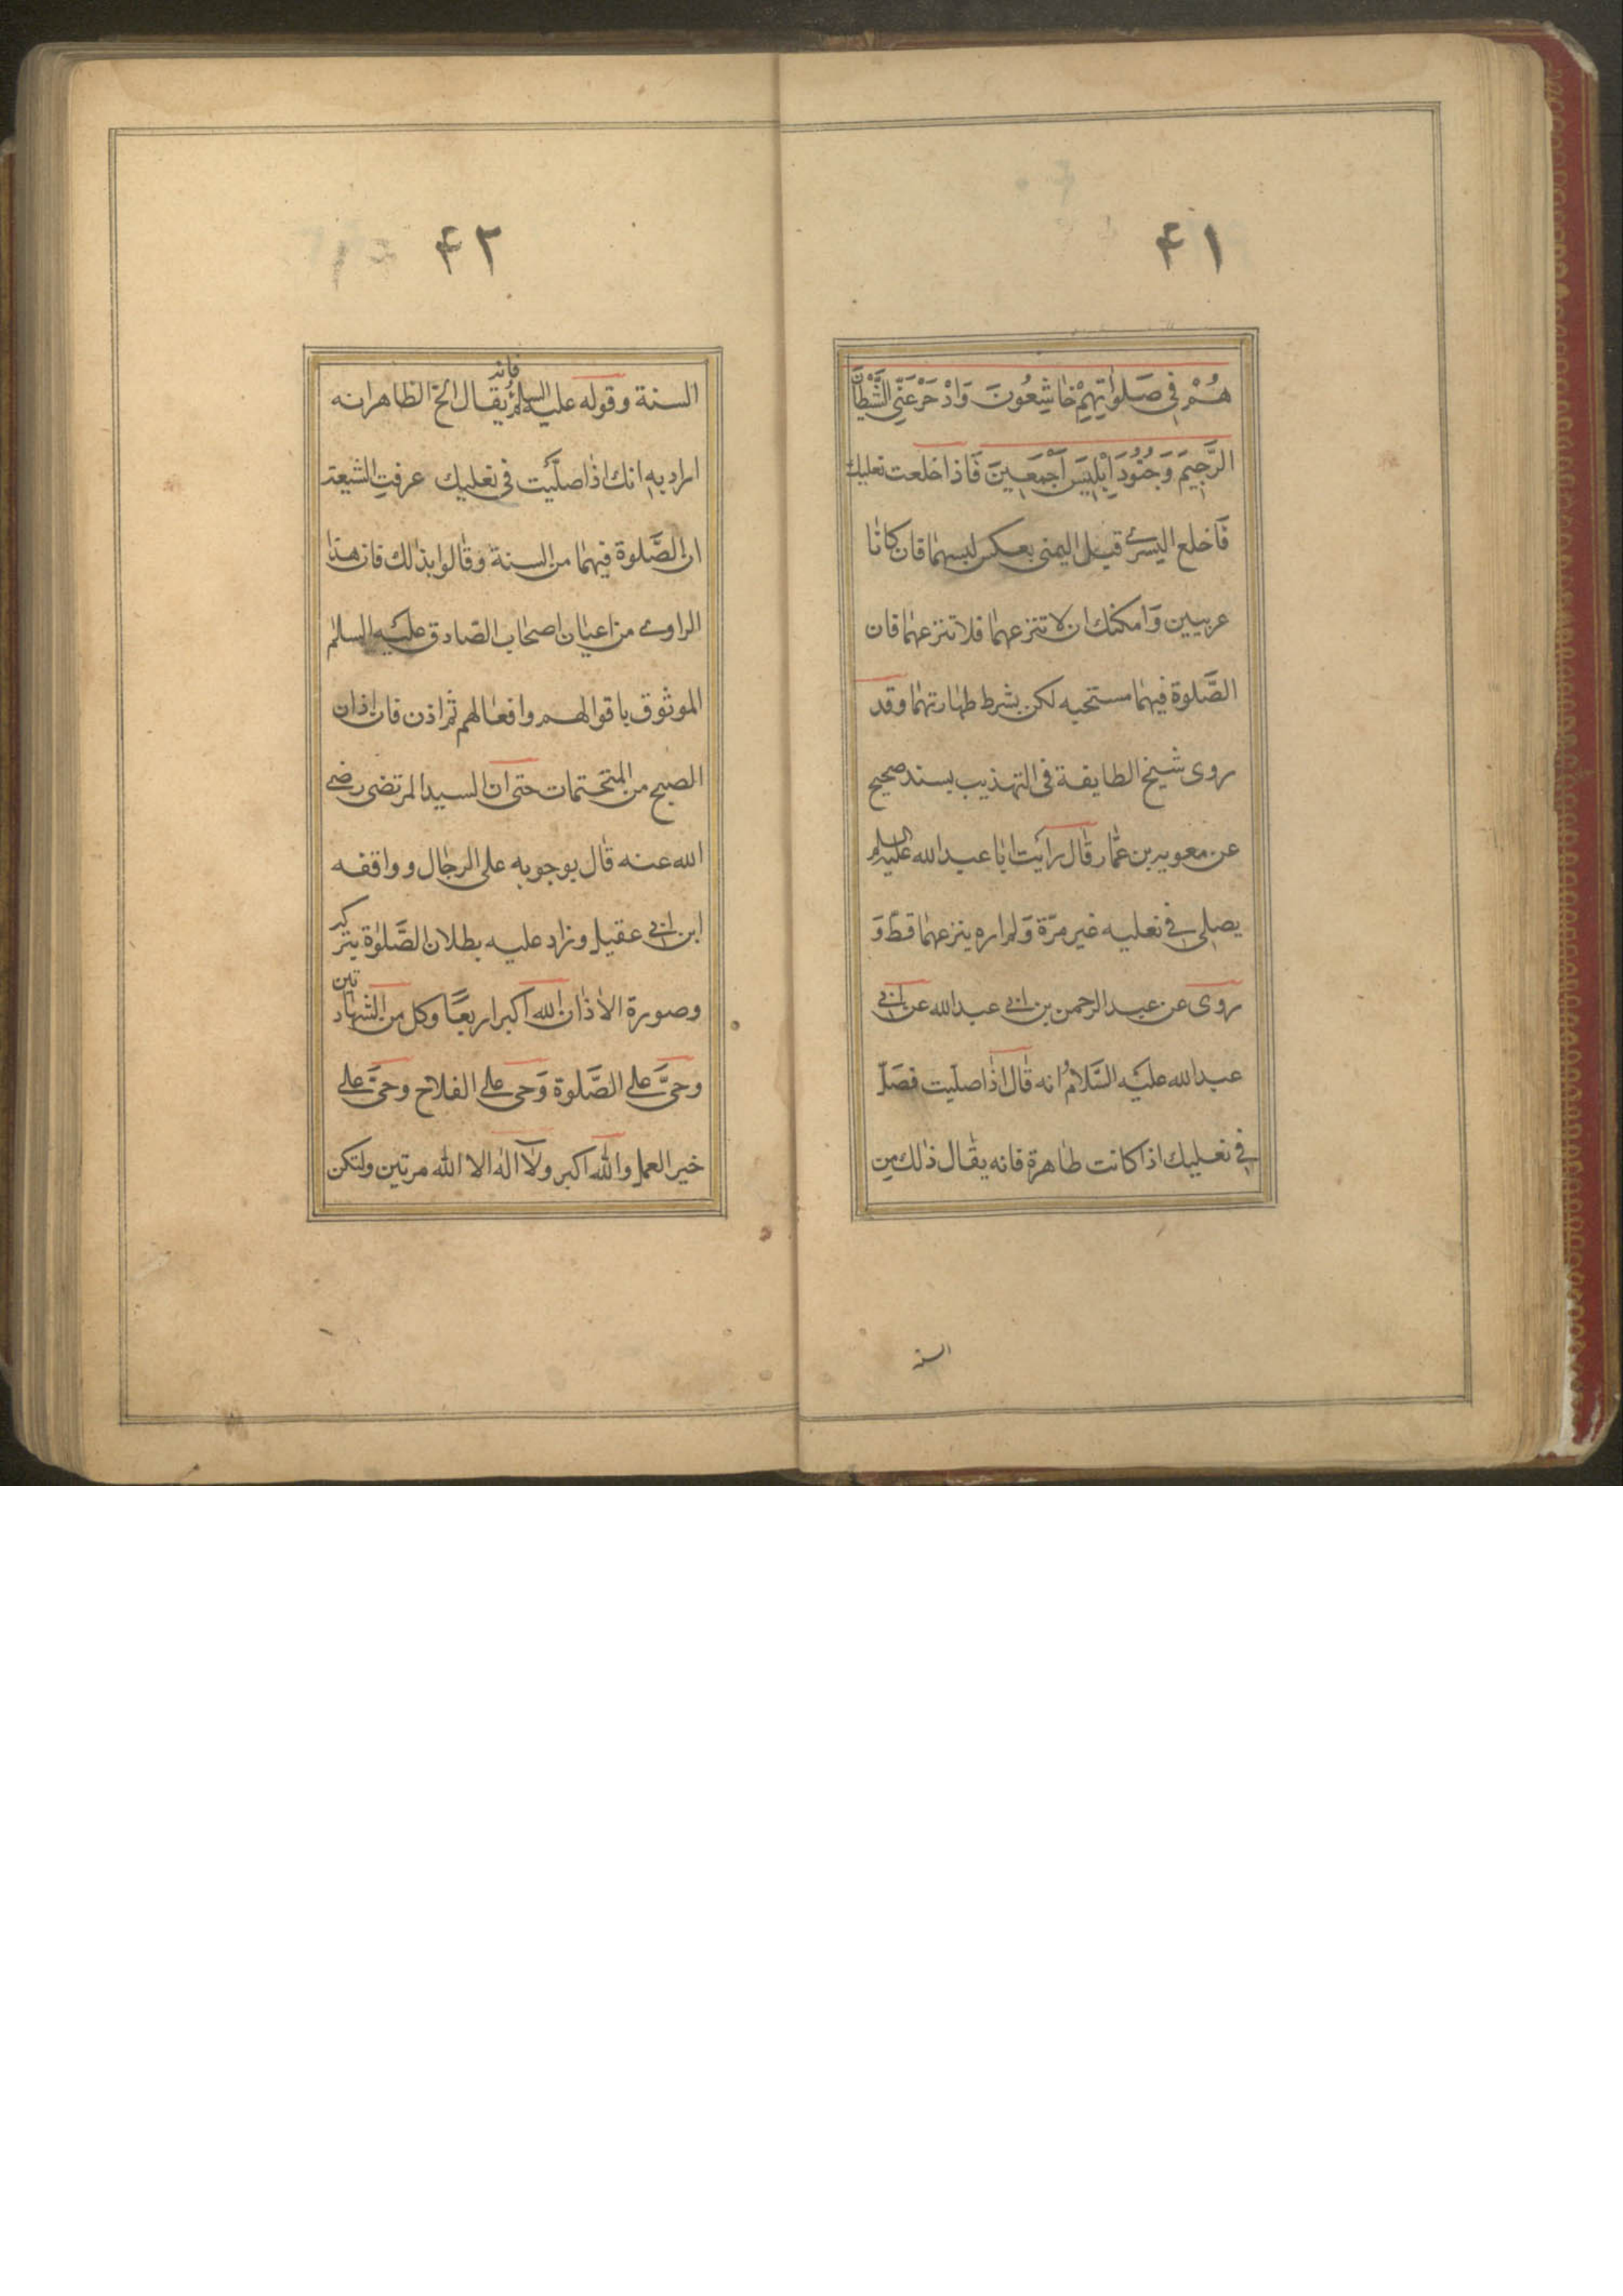 ۴۱
هُمْ فِی صَلَوٰاتِهِمْ خٰاشِعُونَ وَادْحَرْ عَنِّی الشَّیْطٰانَ
الرَّجِیمَ وَجُنُودَ اِبْلِیسَ اَجْمَعِینَ فَاذا خلعت نعلیك
فَاخلع الیسرے قبل الیمنی بعکس لبسهما فان کانا
عربیین وَامکنك ان لا تنزعهما فلا تنزعهما فان
الصَّلوة فیهما مستحبه لکن بشرط طهارتهما وقد
روی شیخ الطایفة فی التهذیب بسند صحیح
عن معویه بن عمّار قال رایت ابا عبد الله علیه السلم
یصلی فے نعلیه غیر مرّة وَلم اره ینزعهما قطّ وَ
روی عن عبد الرحمن بن ابی عبد الله عن ابی
عبد الله علیَه السَّلامُ انه قال اذا صلّیت فصَلّ
فے نعلیك اذا کانت طاهرة فانه یقال ذلك من
السنه
۴۲
السنة وقوله علیه السلمُ فانه یقال الخ الظاهر انه
اراد به انك اذا صلّیَت فی نعلیك عرفتِ الشیعة
ان الصَّلوة فیهما من السنة وقالوا بذلك فان هذا
الراوے من اعیان اصحاب الصّادق علیَه السلم
الموثوق باقوالهم وافعالهم ثم اذن فان اذان
الصبح من المتحتمات حتی ان السید المرتضی رضے
الله عنه قال بوجوبه علی الرجال و واقفه
ابن ابی عقیل وزاد علیه بطلان الصَّلوٰة بترکه
وصورة الاذان الله اکبر اربعًا وکل من الشهادتین
وحیَّ علے الصَّلوة وَحی علے الفلاح وحیَّ علے
خیر العمل والله اکبر ولآ اله الا الله مرتین ولتکن